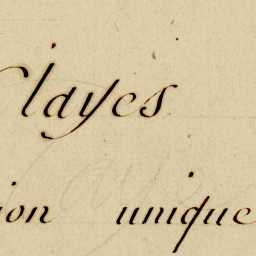 Clayes
ion unique